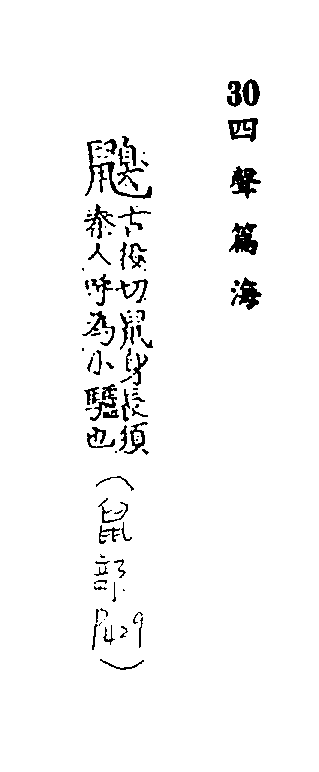 30四聲篇海
鼳
古役切鼠身長須
秦人呼為小驢也
(鼠部P429)